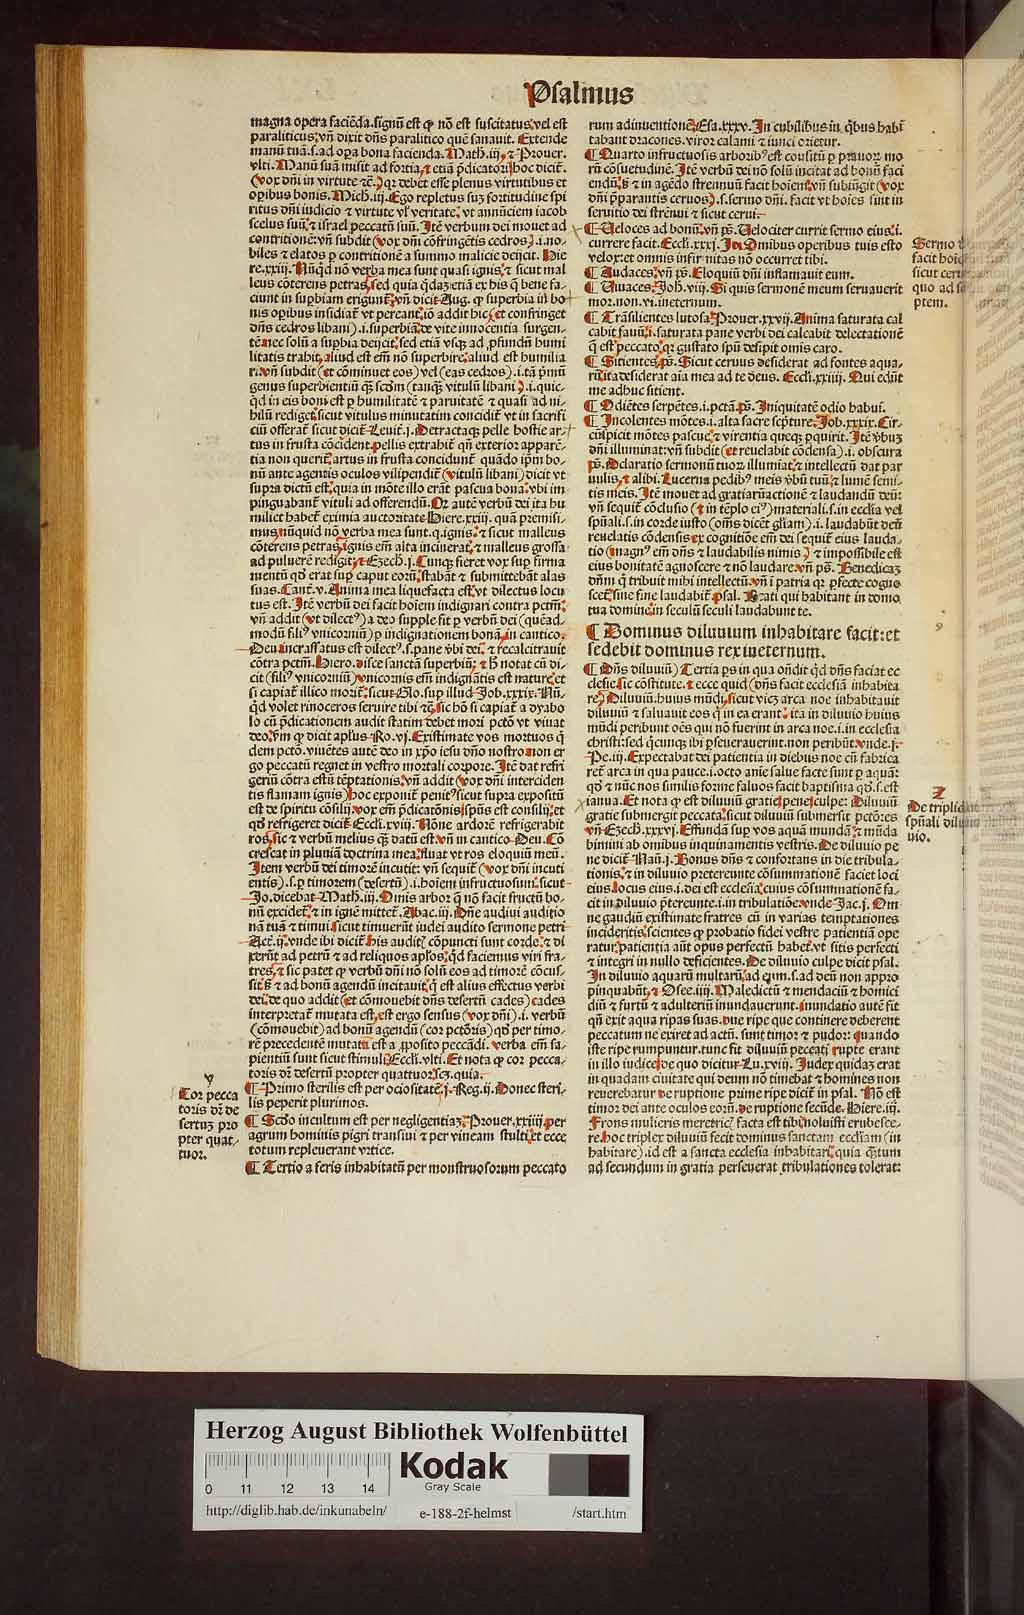 Psalmus
magna opera faciēda. signū est ꝙ nō est suscitatus vel est
paraliticus. vn̄ dixit dn̄s paralitico quē sanauit. Extende
manū tuā. s. ad oꝑa bona facienda. Math. iij. ⁊ Prouer.
vlti. Manū suā misit ad fortia, ⁊ etiā p̄dicatori hoc dicit̄.
(vox dn̄i in virtute ⁊c̄.) qr debet esse plenus virtutibus et
oꝑibus bonis. Mich. iij. Ego repletus suꝫ fortitudine spi
ritus dn̄i iudicio ⁊ virtute vl' veritate: vt annūciem iacob
scelus suū, ⁊ israel peccatū suū. Itē verbum dei mouet ad
contritionē: vn̄ subdit (vox dn̄i cōfringētis cedros) .i. no-
biles ⁊ elatos ꝑ contritionē a summo malicie deijcit. Hie
re. xxiij. Nūqd nō verba mea sunt quasi ignis, ⁊ sicut mal
leus cōterens petras, sed quia q̄daꝫ etiā ex his q̄ bene fa-
ciunt in suꝑbiam erigunt̄: vn̄ dicit Aug. ꝙ superbia in bo
nis opibus insidiat̄ vt pereant: iō addit hic (et confringet
dn̄s cedros libani) .i. superbiā de vite innocentia surgen-
tē: nec solū a suꝑbia deijcit: sed etiā vsqꝫ ad ꝓfundū humi
litatis trahit, aliud est em̄ nō superbire: aliud est humilia
ri. vn̄ subdit (et cōminuet eos) vel (eas cedros) .i. tā p̄mū
genus superbientiū q̄ scd̄m (tanqꝫ vitulū libani) .i. quic-
qd in eis boni est ꝑ humilitatē ⁊ paruitatē ⁊ quasi ad ni-
hilū rediget: sicut vitulus minutatim concidit̄ vt in sacrifi
ciū offerat̄ sicut dicit̄ Leuit. j. Detractaqꝫ pelle hostie ar-
tus in frusta cōcident. pellis extrahit̄ qn̄ exterior apparē-
tia non querit̄: artus in frusta concidunt̄ quādo ip̄m bo-
nū ante agentis oculos vilipendit̄ (vitulū libani) dicit vt
supra dictū est: quia in mōte illo erāt pascua bona: vbi im
pinguabant̄ vituli ad offerendū. Qꝛ autē verbū dei ita hu
miliet habet̄ eximia auctoritate Hiere. xxiij. quā premisi-
mus. nūquid nō verba mea sunt. q. ignis, ⁊ sicut malleus
cōterens petras, ignis em̄ alta incinerat, ⁊ malleus grossa
ad puluerē redigit: ⁊ Ezech. j. Cunqꝫ fieret vox sup firma
mentū qd erat sup caput eorū, stabāt ⁊ submittebāt alas
suas. Cant. v. Anima mea liquefacta est, vt dilectus locu
tus est. Itē verbū dei facit hoīem indignari contra pctm̄:
vn̄ addit (vt dilectꝰ) a deo supple sit ꝑ verbū dei (quēad
modū filiꝰ vnicorniū) ꝑ indignationem bonā, in cantico.
Deu. incrassatus est dilectꝰ. s. pane vbi dei, ⁊ recalcitrauit
cōtra pctm̄. Hiero. disce sanctā superbiā, ⁊ h̄ notat cū di-
cit (filiꝰ vnicorniū) vnicornis em̄ indignātis est nature, et
si capiat̄ illico morit̄: sicut Glo. sup illud Job. xxxix. Nū-
qd volet rinoceros seruire tibi ⁊c̄, sic hō si capiat̄ a dyabo
lo cū p̄dicationem audit statim debet mori pctō vt viuat
deo. vn̄ ꝙ dicit apl'us Ro. vj. Existimate vos mortuos q̄
dem pctō. viuētes autē deo in xp̄o iesu dn̄o nostro non er
go peccatū regnet in vestro mortali corpore. Itē dat refri
geriū cōtra estū tēptationis. vn̄ addit (vox dn̄i interciden
tis flamam ignis) hoc exponit̄ penitꝰ sicut supra expositū
est de spiritu cōsilij: vox em̄ p̄dicatōnis sp̄us est consilij: et
qd refrigeret dicit̄ Eccli. xviij. Nōne ardorē refrigerabit
ros, sic ⁊ verbū melius q̄ datū est. vn̄ in cantico Deu. Cō
crescat in pluuiā doctrina mea: fluat vt ros eloquiū meū.
Item verbū dei timorē incutit: vn̄ sequit̄ (vox dn̄i incuti
entis) .s. ꝑ timorem (desertū) .i. hoīem infructuosum: sicut
Jo. dicebat Math. iij. Omīs arbor q̄ nō facit fructū bo-
nū excidet̄, ⁊ in ignē mittet̄. Abac. iij. Dn̄e audiui auditio
nā tuā ⁊ timui, sicut timuerūt iudei audito sermone petri
Act. ij. vnde ibi dicit̄ his auditꝫ cōpuncti sunt corde, ⁊ di
xerūt ad petrū ⁊ ad reliquos apl'os: qd faciemus viri fra-
tres, ⁊ sic patet ꝙ verbū dn̄i nō solū eos ad timorē cōcus-
sit: s̄ ⁊ ad bonū agendū incitauit: q̄ est alius effectus verbi
dei. de quo addit (et cōmouebit dn̄s desertū cades) cades
interpretat̄ mutata est, est ergo sensus (vox dn̄i) .i. verbū
(cōmouebit) ad bonū agendū (cor pctōris) qd per timo-
rē precedentē mutatū est a ꝓposito peccādi. verba em̄ sa-
pientiū sunt sicut stimuli, Eccli. vlti. Et nota ꝙ cor pecca-
toris dr̄ desertū propter quattuor: scꝫ. quia.
¶ Primo sterilis est per ociositatē. j. Reg. ij. Donec steri-
lis peperit plurimos.
¶ Scd̄o incultum est per negligentiaꝫ. Prouer. xxiiij. per
agrum hominis pigri transiui ⁊ per vineam stulti, et ecce
totum repleuerant vrtice.
¶ Tertio a feris inhabitatū per monstruosorum peccato
y
Cor pecca
toris dr̄ de
sertuꝫ pro
pter quat-
tuor.
rum adinuentionē, Esa. xxxv. In cubilibus in q̄bus habi
tabant dracones. viror calami ⁊ iunci orietur.
¶ Quarto infructuosis arboribꝰ est cōsitū ꝑ prauoꝝ mo
rū cōsuetudinē. Itē verbū dei nō solū incitat ad bonū faci
endū, s̄ ⁊ in agēdo strennuū facit hoīem: vn̄ subiūgit (vox
dn̄i p̄parantis ceruos) .s. sermo dn̄i. facit vt hoīes sint in
seruitio dei strenui ⁊ sicut cerui.
¶ Veloces ad bonū. vn̄ ps̄. Velociter currit sermo eius. i.
currere facit. Eccli. xxxj. In omibus operibus tuis esto
velox: et omnis infirmitas nō occurret tibi.
¶ Audaces, vn̄ ps̄. Eloquiū dn̄i inflamauit eum.
¶ Viuaces, Joh. viij. Si quis sermonē meum seruauerit
mor. non. vi. ineternum.
¶ Trāsilientes lutosa: Prouer. xxvij. Anima saturata cal
cabit fauū, i. saturata pane verbi dei calcabit delectationē
q̄ est peccato, qꝛ gustato spū desipit omīs caro.
¶ Sitientes, ps̄. Sicut ceruus desiderat ad fontes aqua-
rū, ita desiderat aīa mea ad te deus. Eccli. xxiiij. Qui edūt
me adhuc sitient.
¶ Odiētes serpētes. i. pctā. ps̄. Iniquitatē odio habui.
¶ Incolentes mōtes. i. alta sacre scpture, Job. xxxix. Cir-
cūspicit mōtes pascue, ⁊ virentia queqꝫ ꝑquirit. Itē v̄buꝫ
dn̄i illuminat: vn̄ subdit (et reuelabit cōdensa) .i. obscura
ps̄. Declaratio sermonū tuoꝝ illumiat, ⁊ intellectū dat par
uulis, ⁊ alibi. Lucerna pedibꝰ meis v̄bū tuū, ⁊ lumē semi-
tis meis. Itē mouet ad gratiarūactionē ⁊ laudandū deū:
vn̄ sequit̄ cōclusio (⁊ in tēplo eiꝰ) materiali. s. in eccl'ia vel
spūali. s. in corde iusto (om̄s dicēt gl'iam) .i. laudabūt deū
reuelatis cōdensis: ex cognitiōe em̄ dei sequit̄ eius lauda-
tio (magnꝰ em̄ dn̄s ⁊ laudabilis nimis) ⁊ impossibile est
eius bonitatē agnoscere ⁊ nō laudare. vn̄ ps̄. Benedicaꝫ
dn̄m q̄ tribuit mihi intellectū. vn̄ i patria qꝛ ꝑfecte cogno
scet̄, sine fine laudabit̄ psal. Beati qui habitant in domo
tua domine: in seculū seculi laudabunt te.
¶ Dominus diluuium inhabitare facit: et
sedebit dominus rex ineternum.
¶ (Dn̄s diluuiū) Tertia ps in qua on̄dit qd dn̄s faciat ec
clesie, sic cōstitute. ⁊ ecce quid (dn̄s facit ecclesiā inhabita
re) Diluuiū. huius mūdi, sicut viciꝫ arca noe inhabitauit
diluuiū ⁊ saluauit eos q̄ in ea erant: ita in diluuio huius
mūdi peribunt oēs qui nō fuerint in arca noe. i. in ecclesia
christi: sed q̄cunqꝫ ibi ꝑseuerauerint. non peribūt. vnde. j.
Pe. iij. Expectabat dei patientia in diebus noe cū fabrica
ret̄ arca in qua pauce. i. octo anīe salue facte sunt ꝑ aquā:
qd ⁊ nūc nos similis forme saluos facit baptisma qd. s. est
ianua. Et nota ꝙ est diluuiū gratie, pene, culpe: Diluuiū
gratie submergit peccata: sicut diluuiū submersit pctōres
vn̄ Ezech. xxxvj. Effundā sup vos aquā mundā, ⁊ mūda
bimini ab omibus inquinamentis vestris. De diluuio pe
ne dicit̄ Nau. j. Bonus dn̄s ⁊ confortans in die tribula-
tionis, ⁊ in diluuio pretereunte cōsummationē faciet loci
eius, locus eius. i. dei est ecclesia: cuius cōsummationē fa-
cit in diluuio p̄tereunte. i. in tribulatiōe. vnde Jac. j. Om
ne gaudiū existimate fratres cū in varias temptationes
incideritis: scientes ꝙ probatio fidei vestre patientiā ope
ratur, patientia aūt opus perfectū habet: vt sitis perfecti
⁊ integri in nullo deficientes. De diluuio culpe dicit psal.
In diluuio aquarū multarū, ad eum. s. ad deū non appro
pinquabūt, ⁊ Osee. iiij. Maledictū ⁊ mendaciū ⁊ homici
diū ⁊ furtū ⁊ adulteriū inundauerunt. inundatio autē fit
qn̄ exit aqua ripas suas. due ripe que continere deberent
peccatum ne exiret ad actū. sunt timor ⁊ pudor: quando
iste ripe rumpuntur. tunc fit diluuiū peccati: rupte erant
in illo iudice, de quo dicitur Lu. xviij. Judex quidaꝫ erat
in quadam ciuitate qui deum nō timebat ⁊ homines non
reuerebatur de ruptione prime ripe dicit̄ in psal. Nō est
timor dei ante oculos eorū. de ruptione secūde. Hiere. iij.
Frons mulieris meretricꝫ facta est tibi, noluisti erubesce-
re. hoc triplex diluuiū fecit dominus sanctam eccl'iam (in
habitare) .id est a sancta ecclesia inhabitari, quia q̄tum
ad secundum in gratia perseuerat, tribulationes tolerat:
Sermo
facit
sicut
quo ad
ptem.
z
De
spūali
uio.
Herzog August Bibliothek Wolfenbüttel
Kodak
Gray Scale
0 11 12 13 14
http://diglib.hab.de/inkunabeln/ e-188-2f-helmst /start.htm